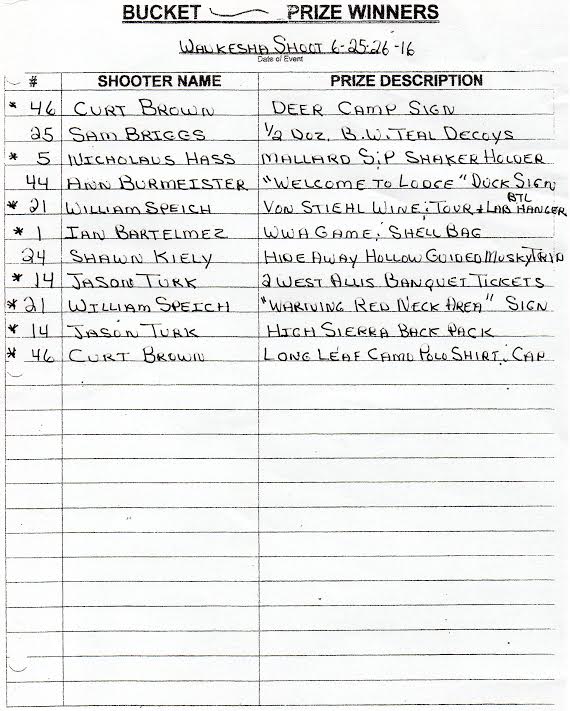 BUCKET PRIZE WINNERS
WAUKESHA SHOOT 6-25-26-16
Date of Event
# SHOOTER NAME PRIZE DESCRIPTION
* 46 CURT BROWN DEER CAMP SIGN
25 SAM BRIGGS 1/2 DOZ. B.W. TEAL DECOYS
* 5 NICHOLAUS HASS MALLARD S;P SHAKER HOLDER
44 ANN BURMEISTER "WELCOME TO LODGE" DUCK SIGN
* 21 WILLIAM SPEICH VON STIEHL WINE; TOUR + LAB BTL HANGER
* 1 IAN BARTELMEZ WWA GAME; SHELL BAG
24 SHAWN KIELY HIDE AWAY HOLLOW GUIDED MUSKY TRIP
* 14 JASON TURK 2 WEST ALLIS BANQUET TICKETS
* 21 WILLIAM SPEICH "WARNING RED NECK AREA" SIGN
* 14 JASON TURK HIGH SIERRA BACK PACK
* 46 CURT BROWN LONG LEAF CAMO POLO SHIRT; CAP